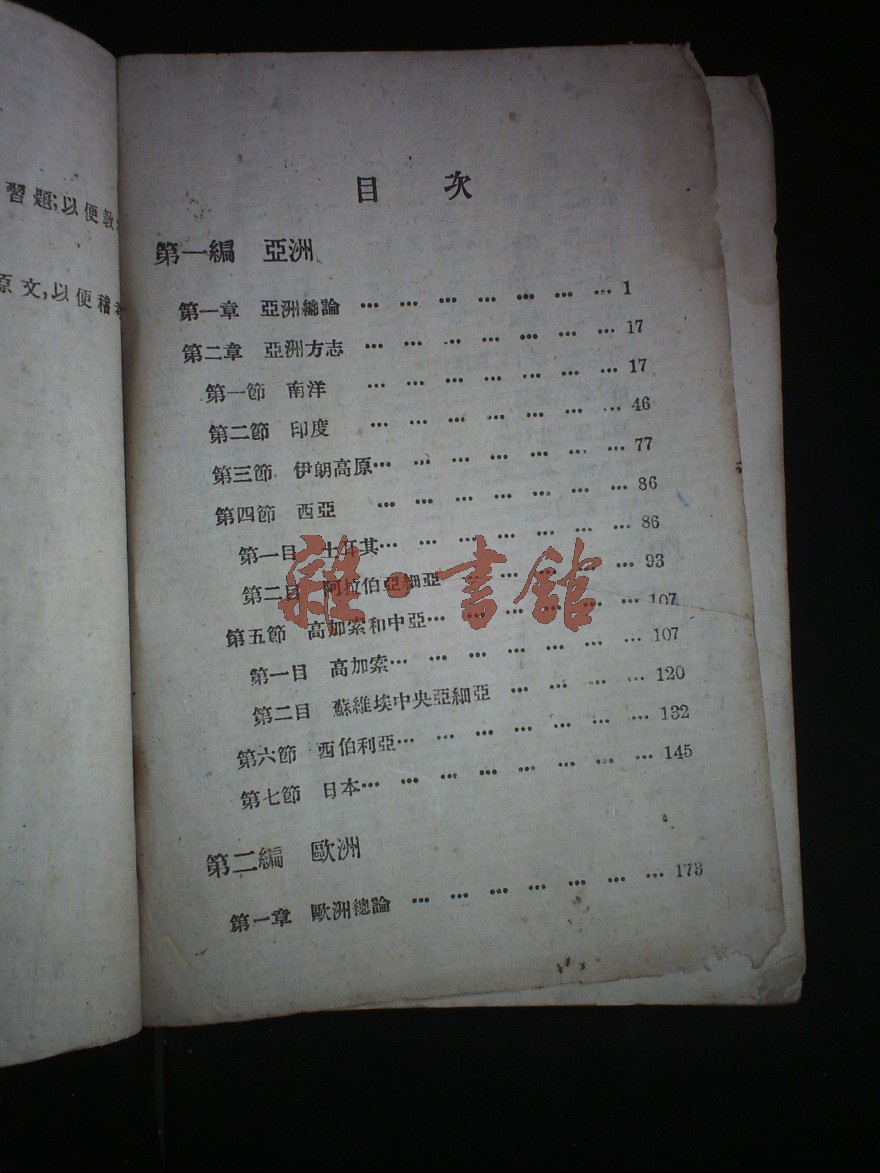 習題;以便教
原文,以便稽
目 次
第一編 亞洲
第一章 亞洲總論 … … … … … … … 1
第二章 亞洲方志 … … … … … … … 17
第一節 南洋 … … … … … … … 17
第二節 印度 … … … … … … … 46
第三節 伊朗高原… … … … … … … 77
第四節 西亞 … … … … … … … 86
第一目 土耳其… … … … … … … 86
第二目 阿拉伯亞細亞 … … … … … 93
第五節 高加索和中亞… … … … … … 107
第一目 高加索… … … … … … … 107
第二目 蘇維埃中央亞細亞 … … … … 120
第六節 西伯利亞… … … … … … … 132
第七節 日本… … … … … … … … 145
第二編 歐洲
第一章 歐洲總論 … … … … … … … 173
雜·書館